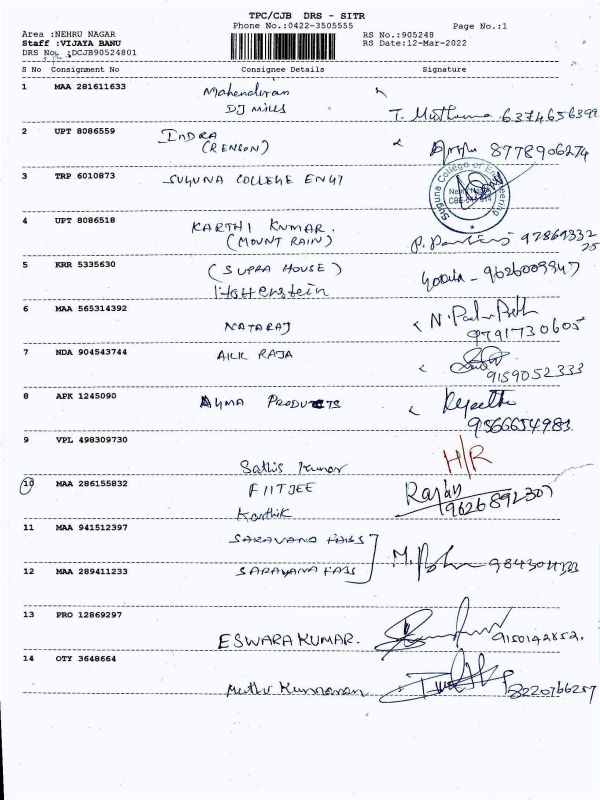 TPC/CJB DRS - SITR
Phone No.:0422-3505555
Page No.:1
Area :NEHRU NAGAR
RS No.:905248
Staff :VIJAYA BANU
RS Date:12-Mar-2022
DRS No. :DCJB90524801
S No Consignment No Consignee Details Signature
1 MAA 281611633 Mahendiran
DJ Mills
6374656399
2 UPT 8086559 INDRA
(RENSON) 8778906274
3 TRP 6010873 SUGUNA COLLEGE ENGY
Suguna College of Engineering
4 UPT 8086518 KARTHI KUMAR.
(MOUNT RAIN)
5 KRR 5335630 (SUPRA HOUSE) 9626009947
Hohenstein
6 MAA 565314392
NATARAJ 9791730605
7 NDA 904543744 RAJA
9159052333
8 APK 1245090 PRODUCTS
9566654983
9 VPL 498309730 H/R
Sathis Kumar
10 MAA 286155832 FIITJEE Rajan
9626892307
Karthik
11 MAA 941512397
SARAVANA
12 MAA 289411233 SARAVANA
13 PRO 12869297
ESWARAKUMAR. 9150142852.
14 OTY 3648664
Muthu Kumaran 8220766257